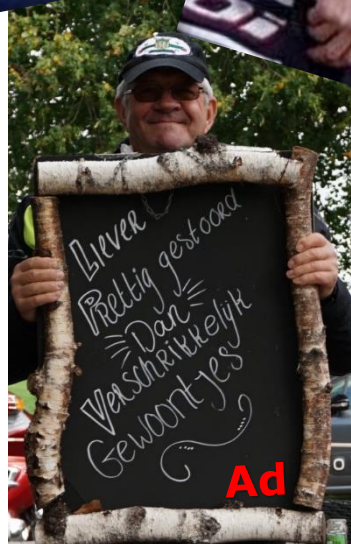 Liever
Prettig gestoord
Dan
Verschrikkelijk
Gewoontjes
Ad